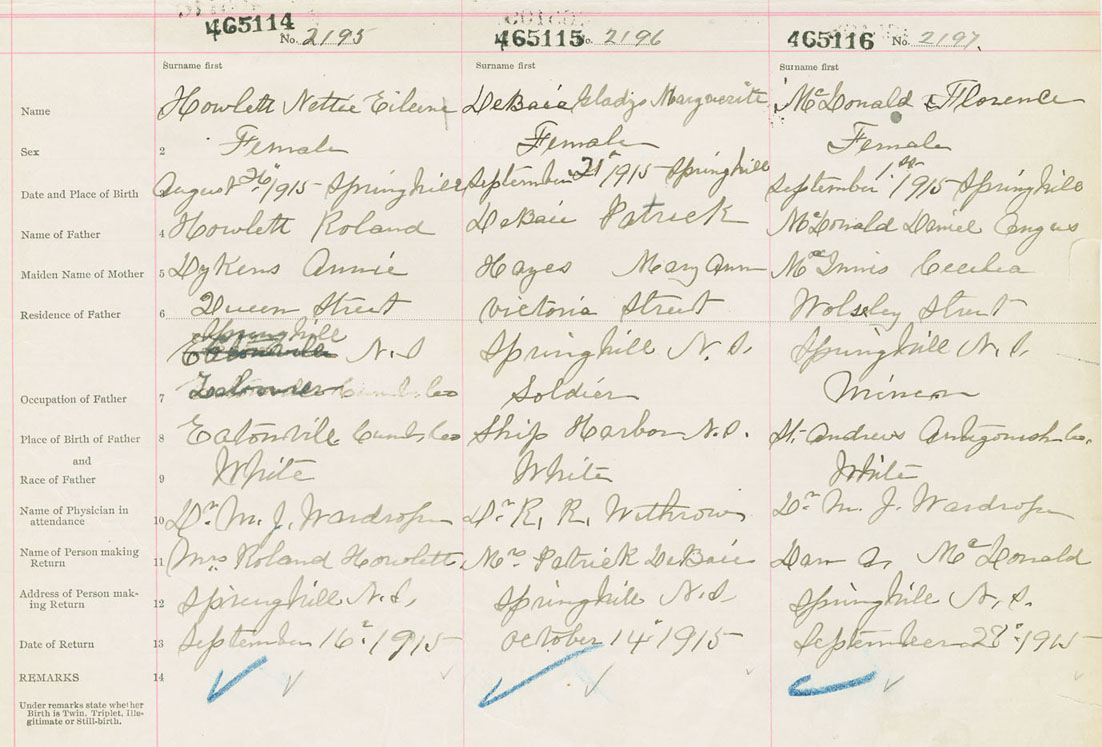 465114 No. 2195 465115 No. 2196 465116 No. 2197
Surname first Surname first Surname first
Name Howlett Nettie Eileen DeBaie Gladys Marguerite McDonald Florence
Sex 2 Female Female Female
Date and Place of Birth August 1915 Springhill September 21st 1915 Springhill September 1st 1915 Springhill
Name of Father 4 Howlett Roland DeBaie Patrick McDonald Daniel Angus
Maiden Name of Mother 5 Dykens Annie Hayes Mary Ann McInnis Cecilia
Residence of Father 6 Queen Street Victoria Street Wolseley Street
Springhill
N.S Springhill N.S. Springhill N.S.
Occupation of Father 7 Cumb. Co Soldier Miner
Place of Birth of Father 8 Eatonville Cumb Co Ship Harbor N.S. St. Andrews Antigonish Co.
and
Race of Father 9 White White White
Name of Physician in attendance 10 Dr. M. J. Wardrope Dr. R. R. Withrow Dr. M. J. Wardrope
Name of Person making Return 11 Mrs Roland Howlett Mrs Patrick DeBaie Dan A. McDonald
Address of Person making Return 12 Springhill N.S. Springhill N.S. Springhill N.S.
Date of Return 13 September 16th 1915 October 14th 1915 September 28th 1915
REMARKS 14
Under remarks state whether
Birth is Twin, Triplet, Ille-
gitimate or Still-birth.